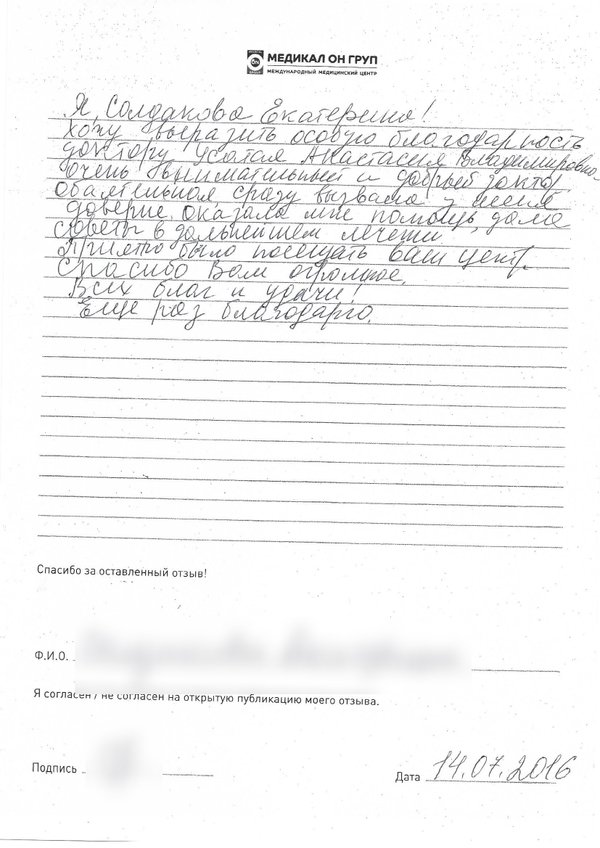 МЕДИКАЛ ОН ГРУП
МЕЖДУНАРОДНЫЙ МЕДИЦИНСКИЙ ЦЕНТР
Я, Солдакова Екатерина!
Хочу выразить особую благодарность
доктору Усатая Анастасия Владимировна
очень внимательный и добрый доктор
обаятельная, сразу вызвала у меня
доверие. оказала мне помощь, дала
советы в дальнейшем лечении,
Приятно было посещать ваш центр.
Спасибо Вам огромное.
Всех благ и удачи!
Еще раз благодарю.
Спасибо за оставленный отзыв!
Ф.И.О.
Я согласен / не согласен на открытую публикацию моего отзыва.
Подпись
Дата 14.07.2016